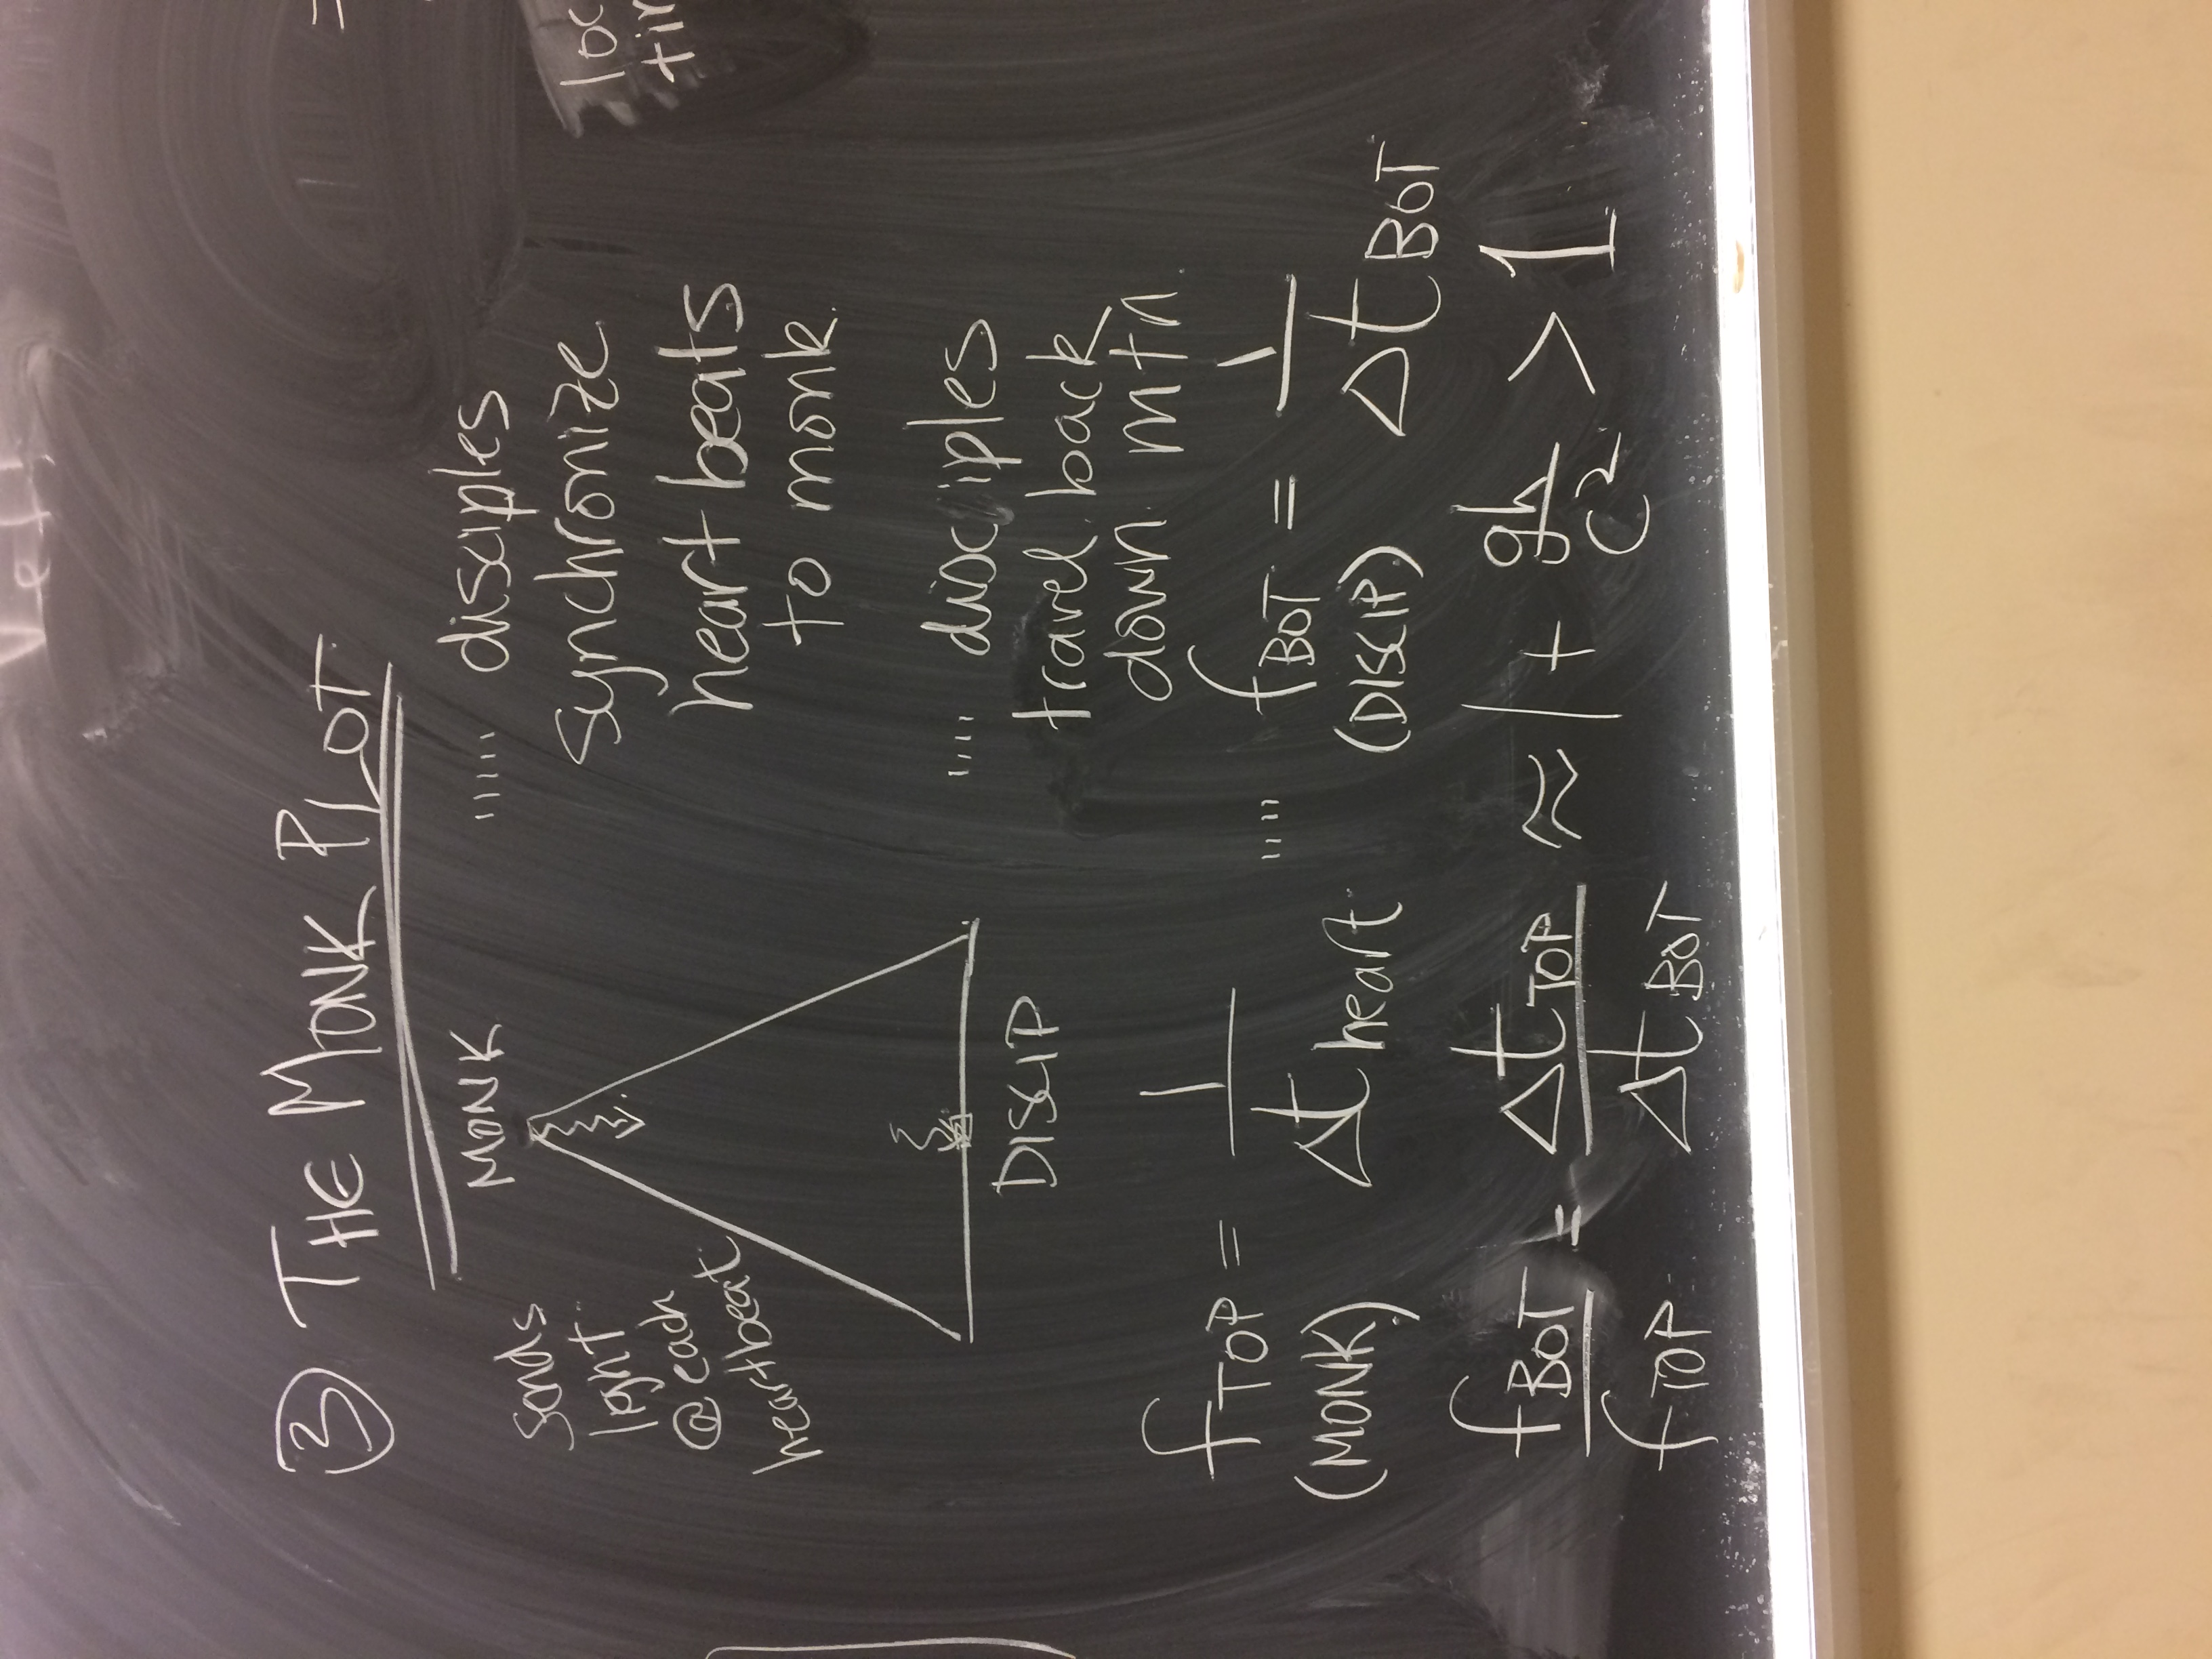 =
loc
tim
③ THE MONK PLOT
MONK
sends
light
@ each
heartbeat
DISCIP
''''' disciples
synchronize
heart beats
to monk.
'''' disciples
travel back
down mtn.
f TOP = 1 / Δt heart
(MONK)
'''' f BOT = 1 / Δt BOT
(DISCIP)
f BOT / f TOP = Δt TOP / Δt BOT ≈ 1 + gh / c² > 1